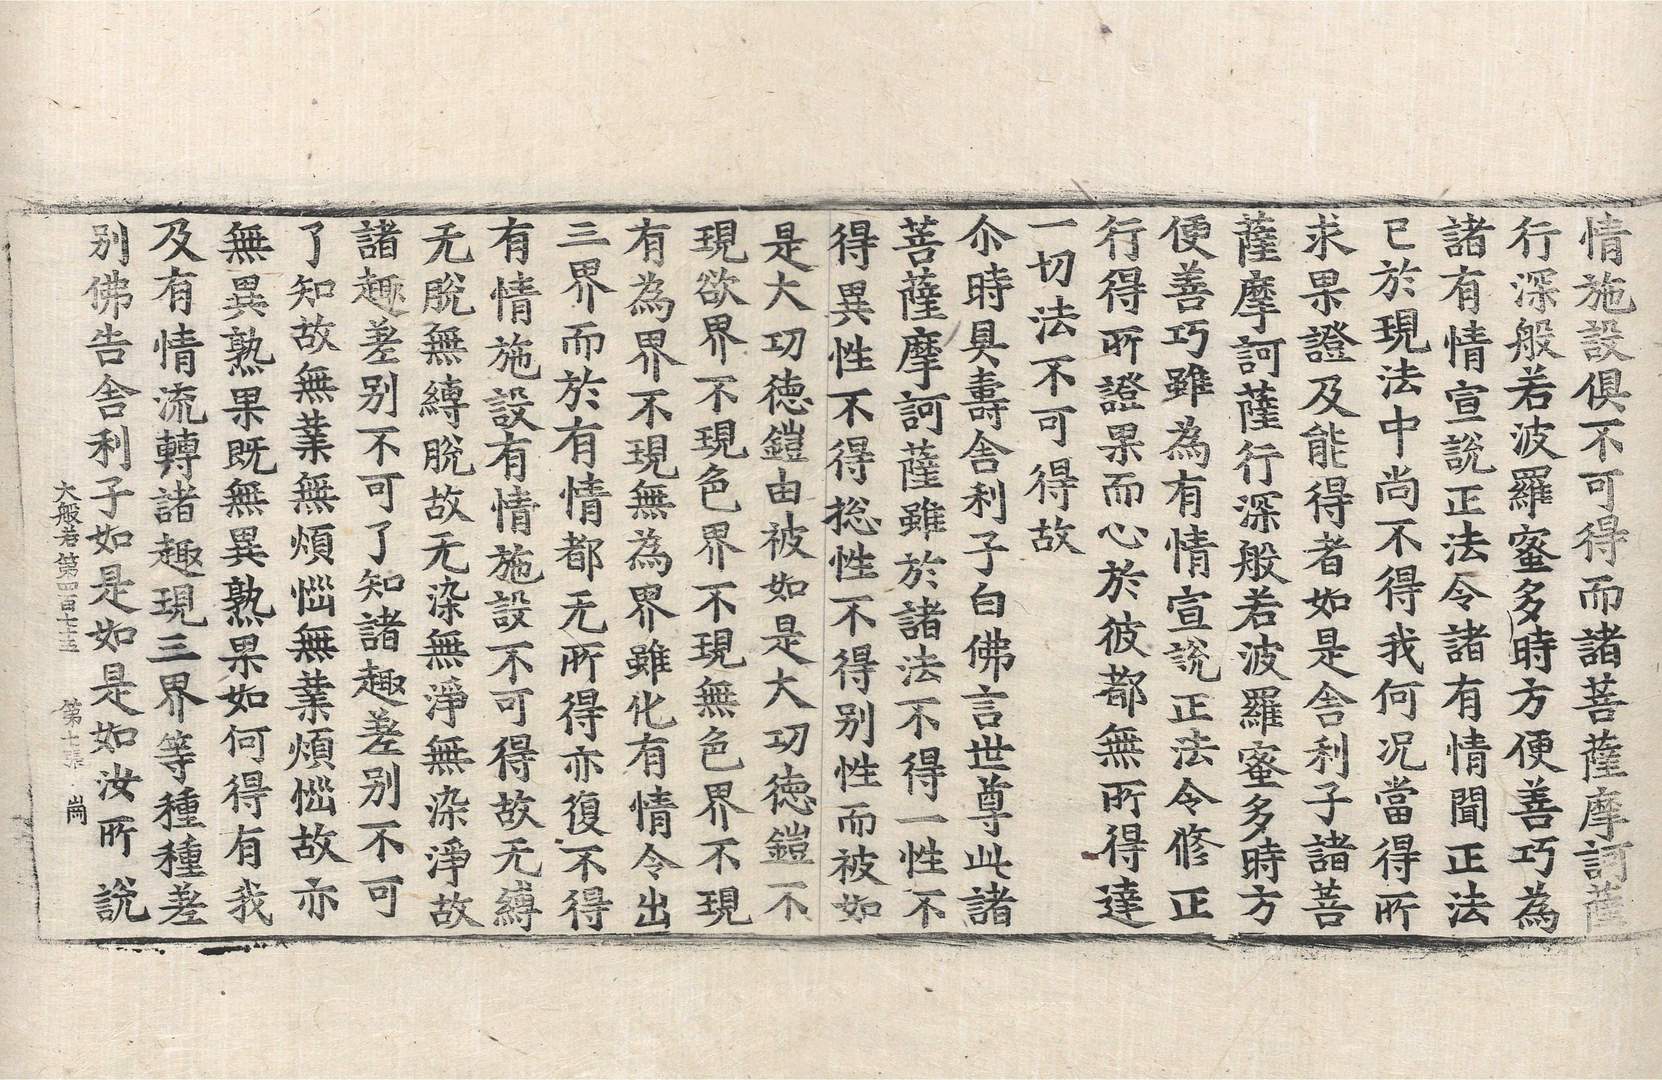 情施設俱不可得而諸菩薩摩訶薩
行深般若波羅蜜多時方便善巧為
諸有情宣說正法令諸有情聞正法
已於現法中尚不得我何況當得所
求果證及能得者如是舍利子諸菩
薩摩訶薩行深般若波羅蜜多時方
便善巧雖為有情宣說正法令修正
行得所證果而心於彼都無所得達
一切法不可得故
尒時具壽舍利子白佛言世尊此諸
菩薩摩訶薩雖於諸法不得一性不
得異性不得捴性不得別性而被如
是大功德鎧由被如是大功德鎧不
現欲界不現色界不現無色界不現
有為界不現無為界雖化有情令出
三界而於有情都无所得亦復不得
有情施設有情施設不可得故无縛
无脫無縛脫故无染無淨無染淨故
諸趣差別不可了知諸趣差別不可
了知故無業無煩惱無業煩惱故亦
無異熟果既無異熟果如何得有我
及有情流轉諸趣現三界等種種差
大般若第四百七十五 第七張 崗
別佛告舍利子如是如是如汝所說